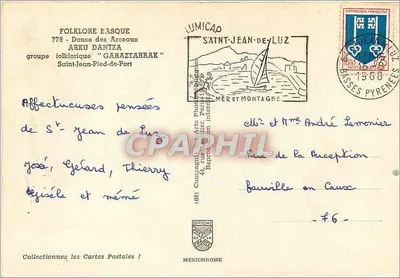 FOLKLORE BASQUE
779 - Danse des Arceaux
ARKU DANTZA
groupe folklorique "GARAZTARRAK"
Saint-Jean-Pied-de-Port
LUMICAP
SAINT-JEAN-DE-LUZ
MER ET MONTAGNE
REPUBLIQUE FRANCAISE
1968
BASSES PYRENEES
Affectueuses pensées
de St-Jean de Luz
José, Gérard, Thierry
Gisèle et mémé
Mr et Mme André Lemonier
Rue de la Perception
Fauville en Caux
-76-
CPAPHIL
Collectionnez les Cartes Postales !
MEXICHROME